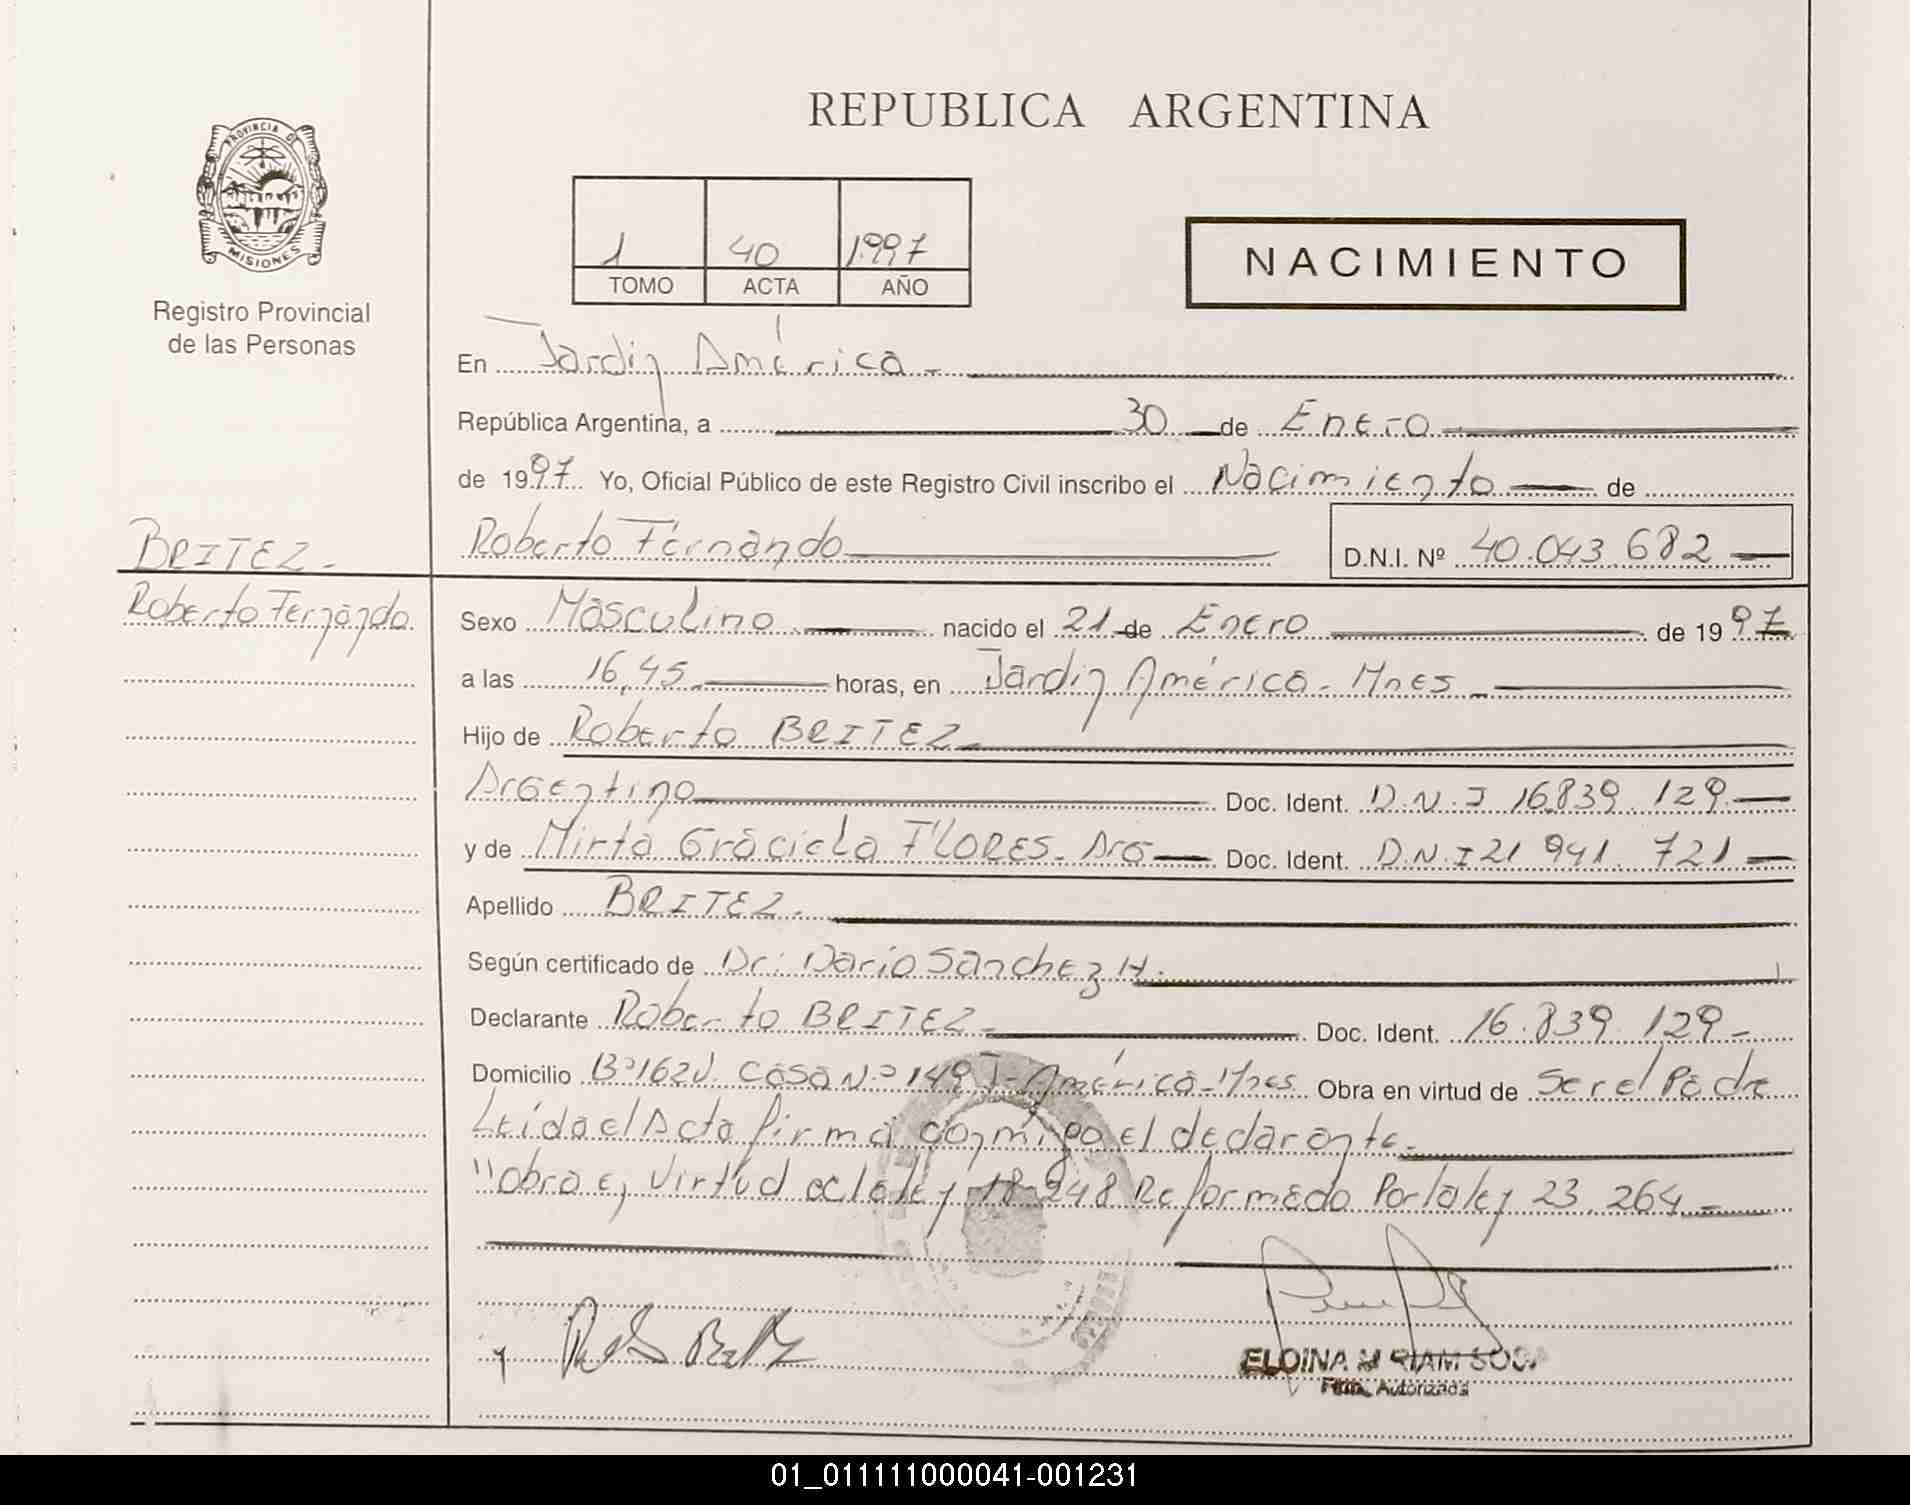 REPUBLICA ARGENTINA
PROVINCIA DE
MISIONES
Registro Provincial
de las Personas
1 40 1997
TOMO ACTA AÑO
NACIMIENTO
En Jardin América
República Argentina, a 30 de Enero
de 1997 Yo, Oficial Público de este Registro Civil inscribo el Nacimiento de
BRITEZ
Roberto Fernando
Roberto Fernando D.N.I. Nº 40.043.682
Sexo Masculino nacido el 21 de Enero de 1997
a las 16,45 horas, en Jardin América - Mnes
Hijo de Roberto BRITEZ
Argentino Doc. Ident. D.N.I 16.839.129
y de Mirta Graciela FLORES - Arg Doc. Ident. D.N.I 21 941.721
Apellido BRITEZ.
Según certificado de Dr: Dario Sanchez H.
Declarante Roberto BRITEZ Doc. Ident. 16.839.129
Domicilio Bº 162V. Casa N.º 149 J- América - Mnes Obra en virtud de Ser el Padre
Leída el Acta firma conmigo el declarante.
"Obra en Virtud de la ley 18-248 Reformado Por la ley 23.264
ELOINA MIRIAM SOSA
Firma Autorizada
01_011111000041-001231